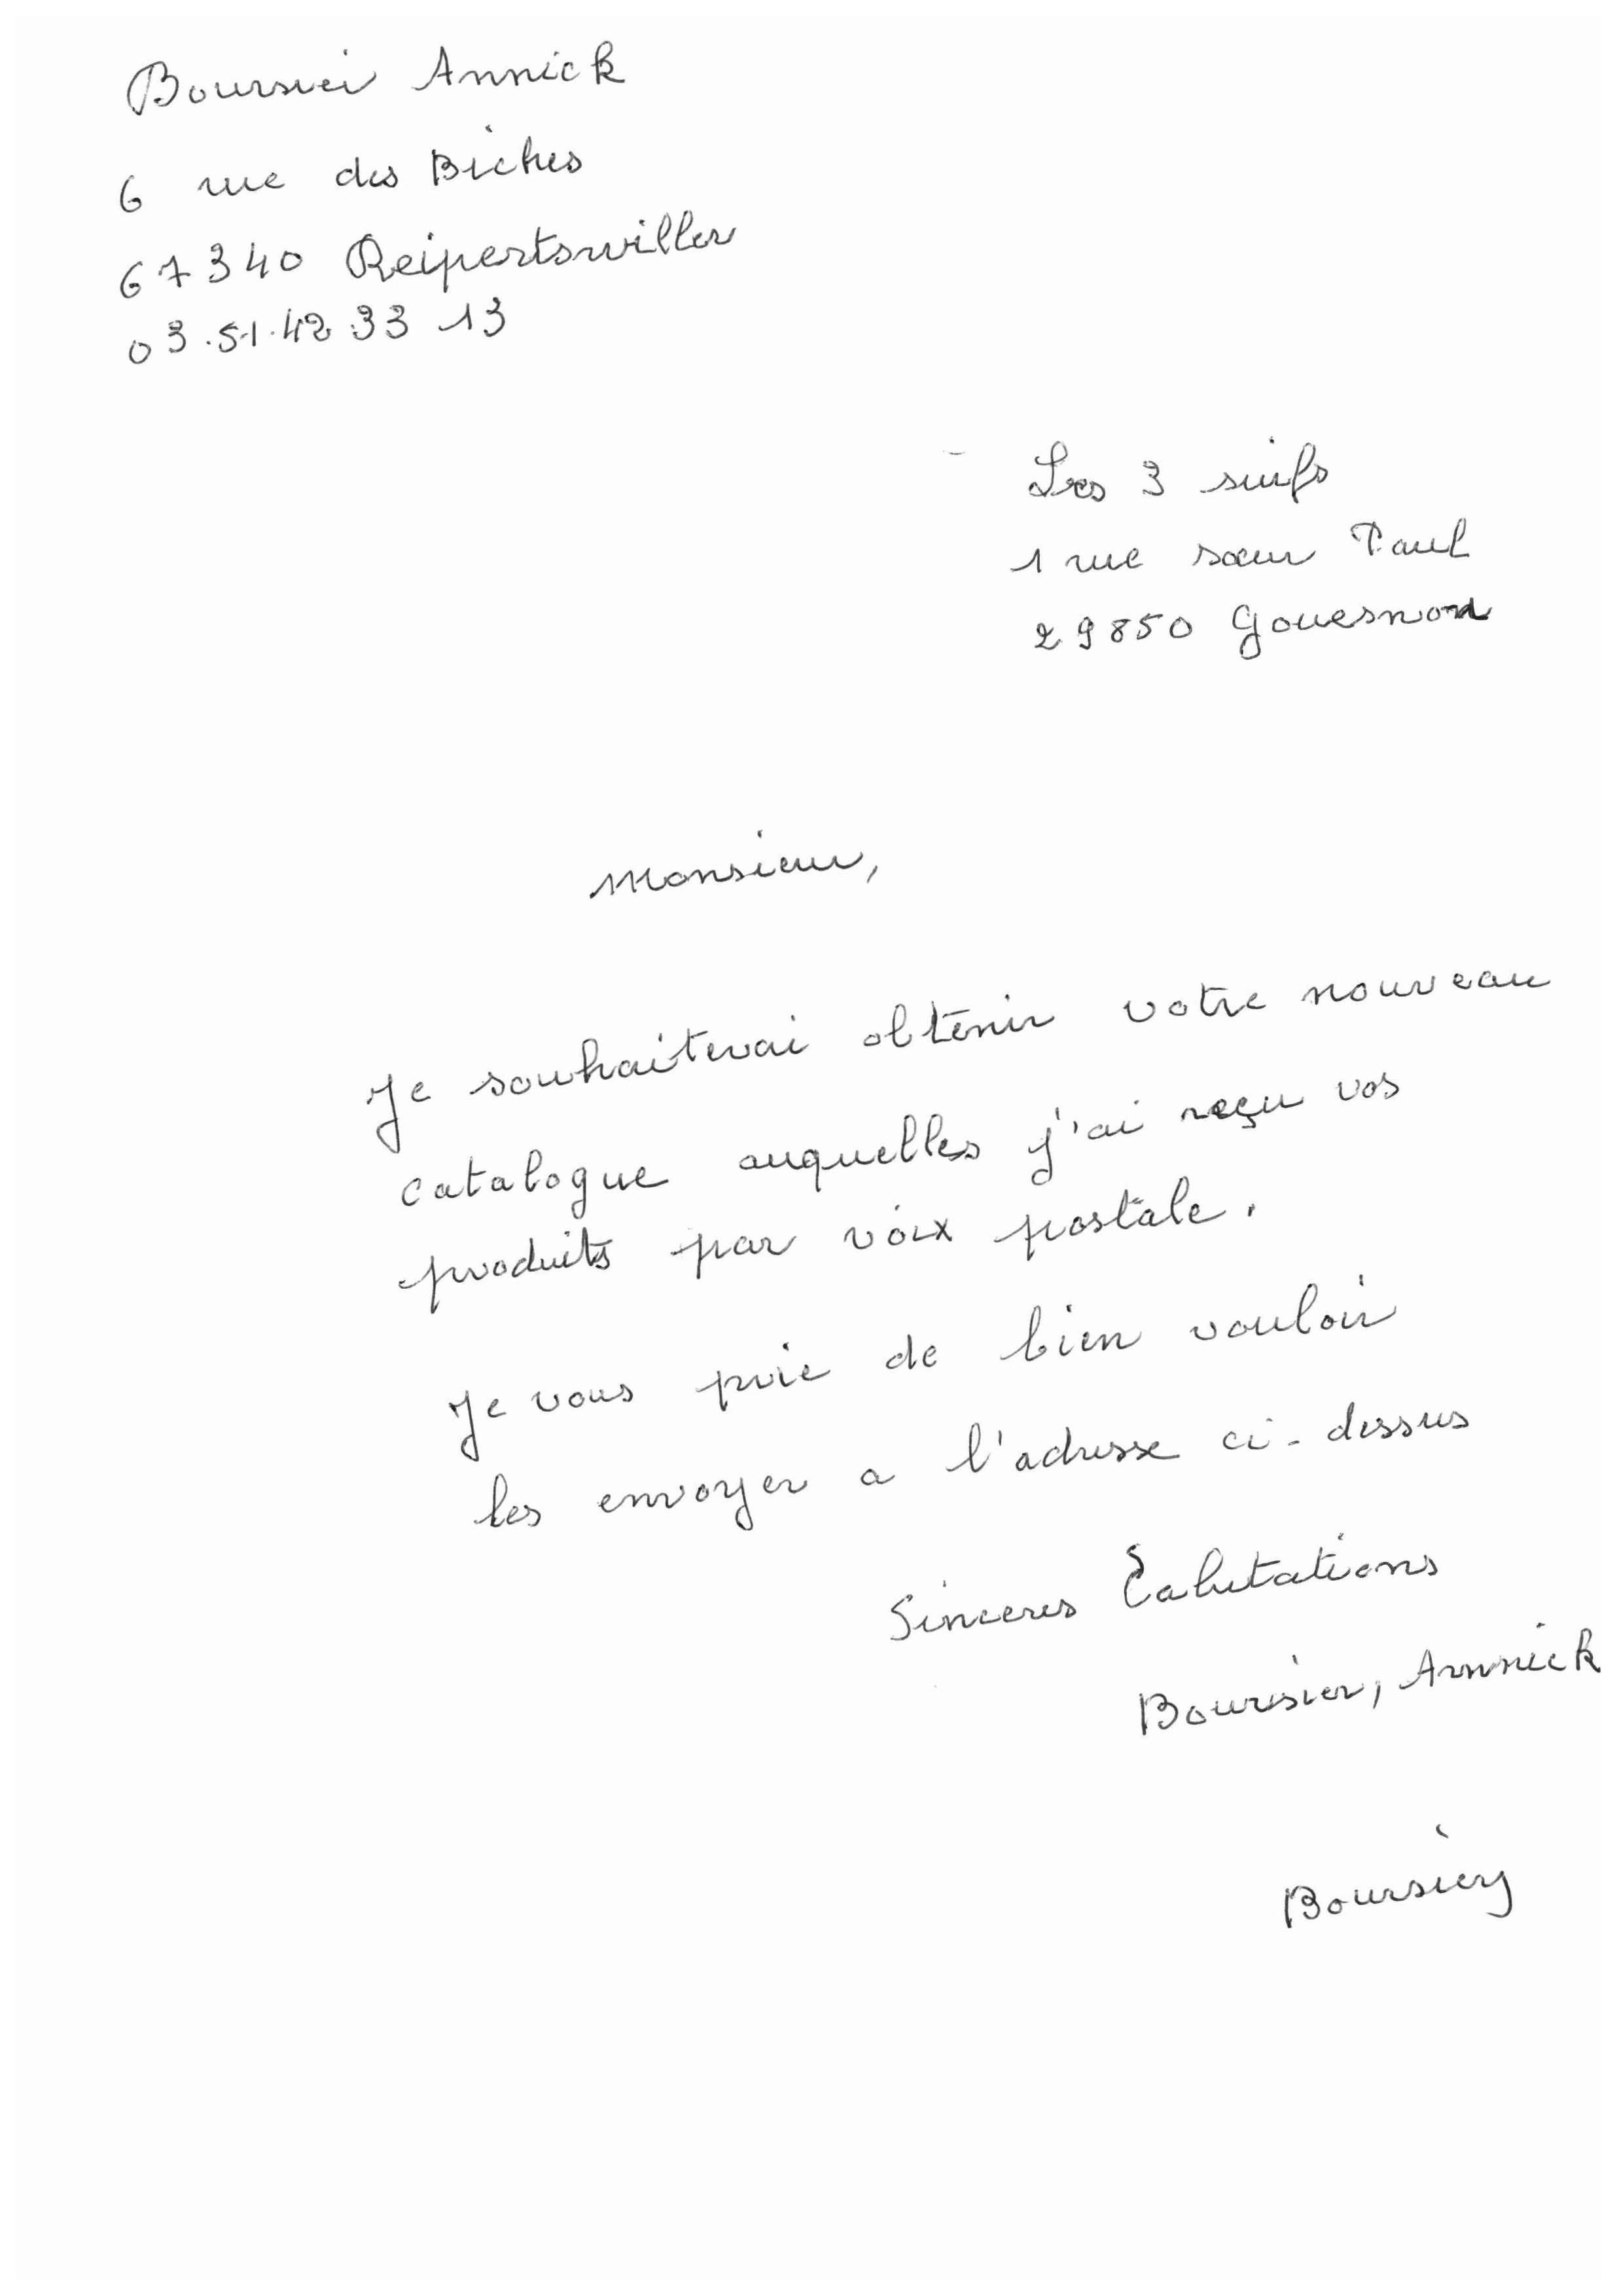 Boursier Annick
6 rue des Biches
67340 Reipertswiller
03.51.42 33 13
Les 3 suifs
1 rue sœur Paul
29850 Gouesnou
Monsieur,
Je souhaiterai obtenir votre nouveau
catalogue auquelles j'ai reçu vos
produits par voix postale.
Je vous prie de bien vouloir
les envoyer a l'adresse ci-dessus
Sinceres Salutations
Boursier, Annick
Boursier